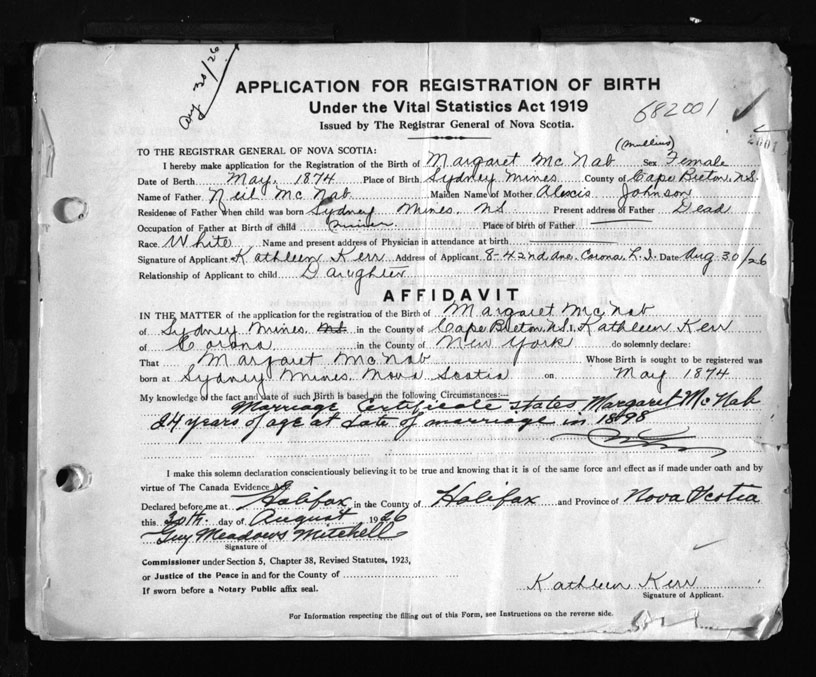 Aug 30/26
APPLICATION FOR REGISTRATION OF BIRTH
Under the Vital Statistics Act 1919
682001
Issued by The Registrar General of Nova Scotia.
2001
TO THE REGISTRAR GENERAL OF NOVA SCOTIA:
(Mullins)
I hereby make application for the Registration of the Birth of Margaret Mc Nab Sex Female
Date of Birth May, 1874 Place of Birth Sydney Mines County of Cape Breton, N.S.
Name of Father Neil Mc Nab Maiden Name of Mother Alexis Johnson
Residense of Father when child was born Sydney Mines, NS Present address of Father Dead
Occupation of Father at Birth of child Miner Place of birth of Father
Race White Name and present address of Physician in attendance at birth
Signature of Applicant Kathleen Kerr Address of Applicant 8-42nd Ave. Corona, L.I. Date Aug 30/26
Relationship of Applicant to child Daughter
AFFIDAVIT
IN THE MATTER of the application for the registration of the Birth of Margaret Mc Nab
of Sydney Mines, NS in the County of Cape Breton, N.S. I, Kathleen Kerr
of Corona in the County of New York do solemnly declare:
That Margaret McNab Whose Birth is sought to be registered was
born at Sydney Mines, Nova Scotia on May 1874
My knowledge of the fact and date of such Birth is based on the following Circumstances:—
Marriage Certificate states Margaret McNab
24 years of age at date of marriage in 1898
I make this solemn declaration conscientiously believing it to be true and knowing that it is of the same force and effect as if made under oath and by
virtue of The Canada Evidence Act
Declared before me at Halifax in the County of Halifax and Province of Nova Scotia
this 30th day of August 1926
Guy Meadows Mitchell
Signature of
Commissioner under Section 5, Chapter 38, Revised Statutes, 1923,
or Justice of the Peace in and for the County of
If sworn before a Notary Public affix seal.
Kathleen Kerr
Signature of Applicant.
For Information respecting the filling out of this Form, see Instructions on the reverse side.